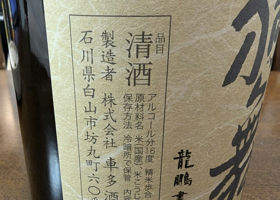 品目
清酒
アルコール分16度 精米歩合
原材料名 米(国産)、米こうじ
保存方法 冷暗所で保管
製造者 株式会社 車多酒
石川県白山市坊丸町六〇番
龍鵬書